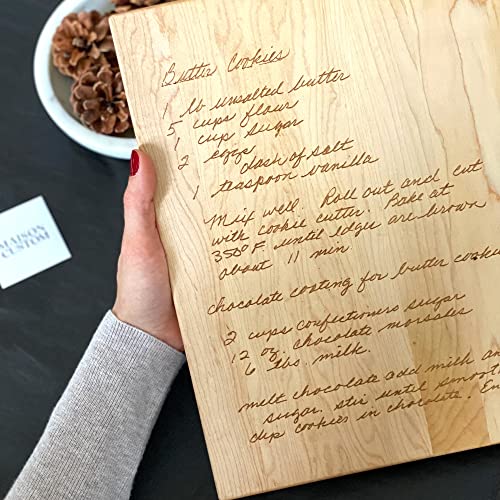 Butter Cookies
1 lb unsalted butter
5 cups flour
1 cup sugar
2 eggs
dash of salt
1 teaspoon vanilla
Mix well. Roll out and cut
with cookie cutter. Bake at
350° F until edges are brown
about 11 min.
chocolate coating for butter cookie
2 cups confectioners sugar
12 oz. chocolate morsales
6 tbs. milk.
melt chocolate add milk an
sugar. stir until smoot
dip cookies in chocolate. En
MAISON
CUSTOM